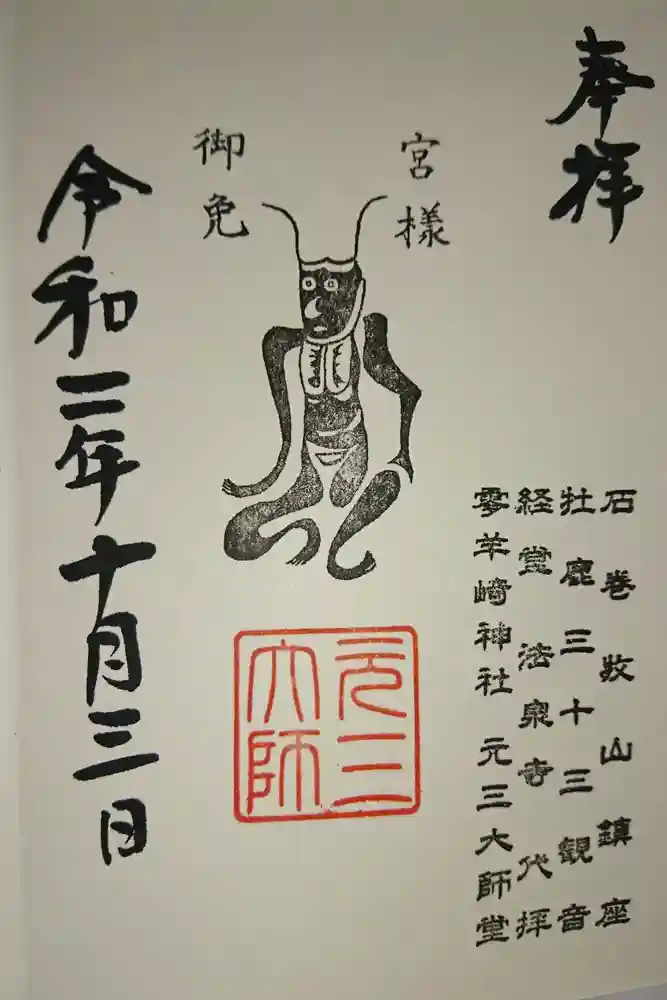 奉拝
宮様
御免
令和二年十月三日
元三
大師
石巻牧山鎮座
牡鹿三十三観音
経堂 法泉寺 代拝
零羊崎神社 元三大師堂